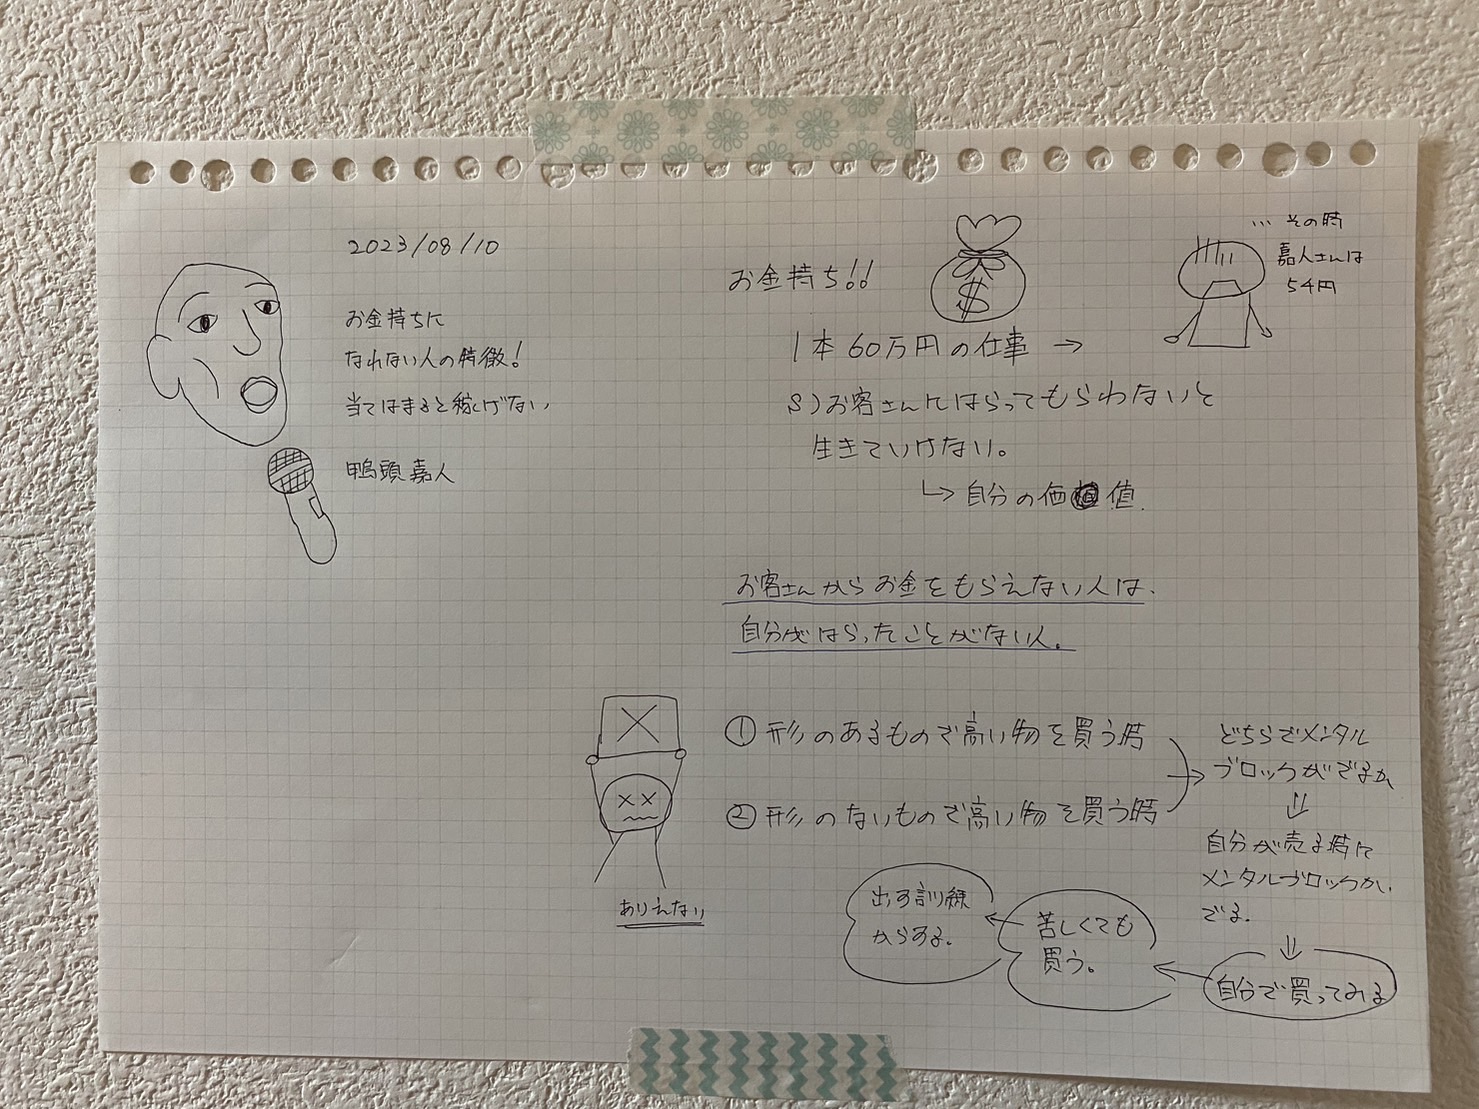 2023/08/10
お金持ちに
なれない人の特徴!
当てはまると稼げない
鴨頭嘉人
お金持ち!!
$
… その時
嘉人さんは
54円
1本60万円の仕事 →
S)お客さんにはらってもらわないと
生きていけない。
↳ 自分の価値
お客さんからお金をもらえない人は、
自分がはらったことがない人。
① 形のあるもので高い物を買う時
② 形のないもので高い物を買う時
→ どちらでメンタル
ブロックがでるか
⇓
自分が売る時に
メンタルブロックが
でる。
⇓
自分で買ってみる
← 苦しくても
買う。
← 出す訓練
からする。
ありえない